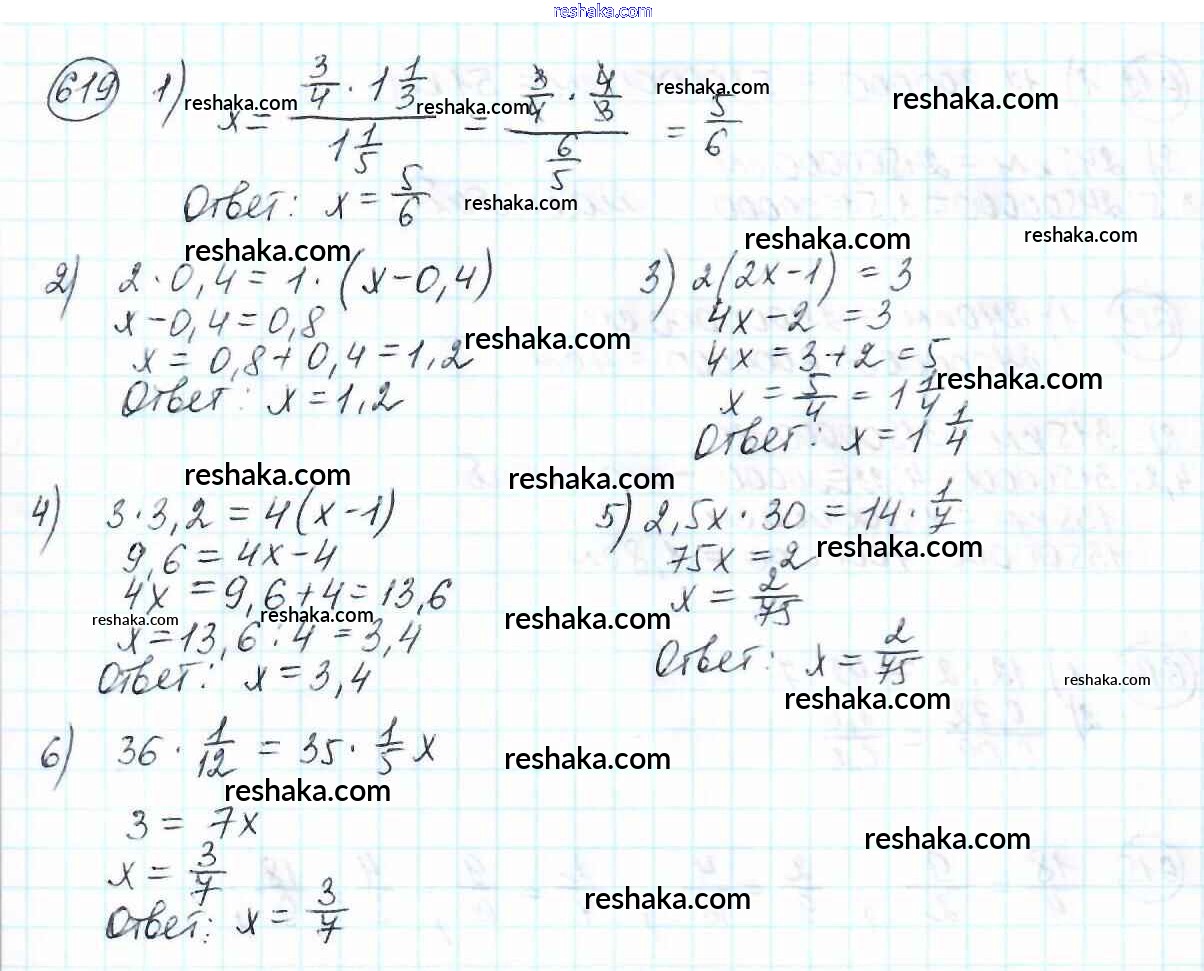 reshaka.com
619 1) x = (3/4 · 1 1/3) / (1 1/5) = (3/4 · 4/3) / (6/5) = 5/6
reshaka.com reshaka.com reshaka.com reshaka.com
Ответ: x = 5/6
reshaka.com
reshaka.com reshaka.com reshaka.com
2) 2 · 0,4 = 1 · (x − 0,4)
x − 0,4 = 0,8
x = 0,8 + 0,4 = 1,2
Ответ: x = 1,2
reshaka.com
3) 2(2x − 1) = 3
4x − 2 = 3
4x = 3 + 2 = 5
x = 5/4 = 1 1/4
Ответ: x = 1 1/4
reshaka.com
reshaka.com reshaka.com
4) 3 · 3,2 = 4(x − 1)
9,6 = 4x − 4
4x = 9,6 + 4 = 13,6
x = 13,6 : 4 = 3,4
Ответ: x = 3,4
reshaka.com reshaka.com reshaka.com
5) 2,5x · 30 = 14 · 1/7
75x = 2
x = 2/75
Ответ: x = 2/75
reshaka.com
reshaka.com reshaka.com
6) 36 · 1/12 = 35 · 1/5 x
3 = 7x
x = 3/7
Ответ: x = 3/7
reshaka.com
reshaka.com
reshaka.com
reshaka.com